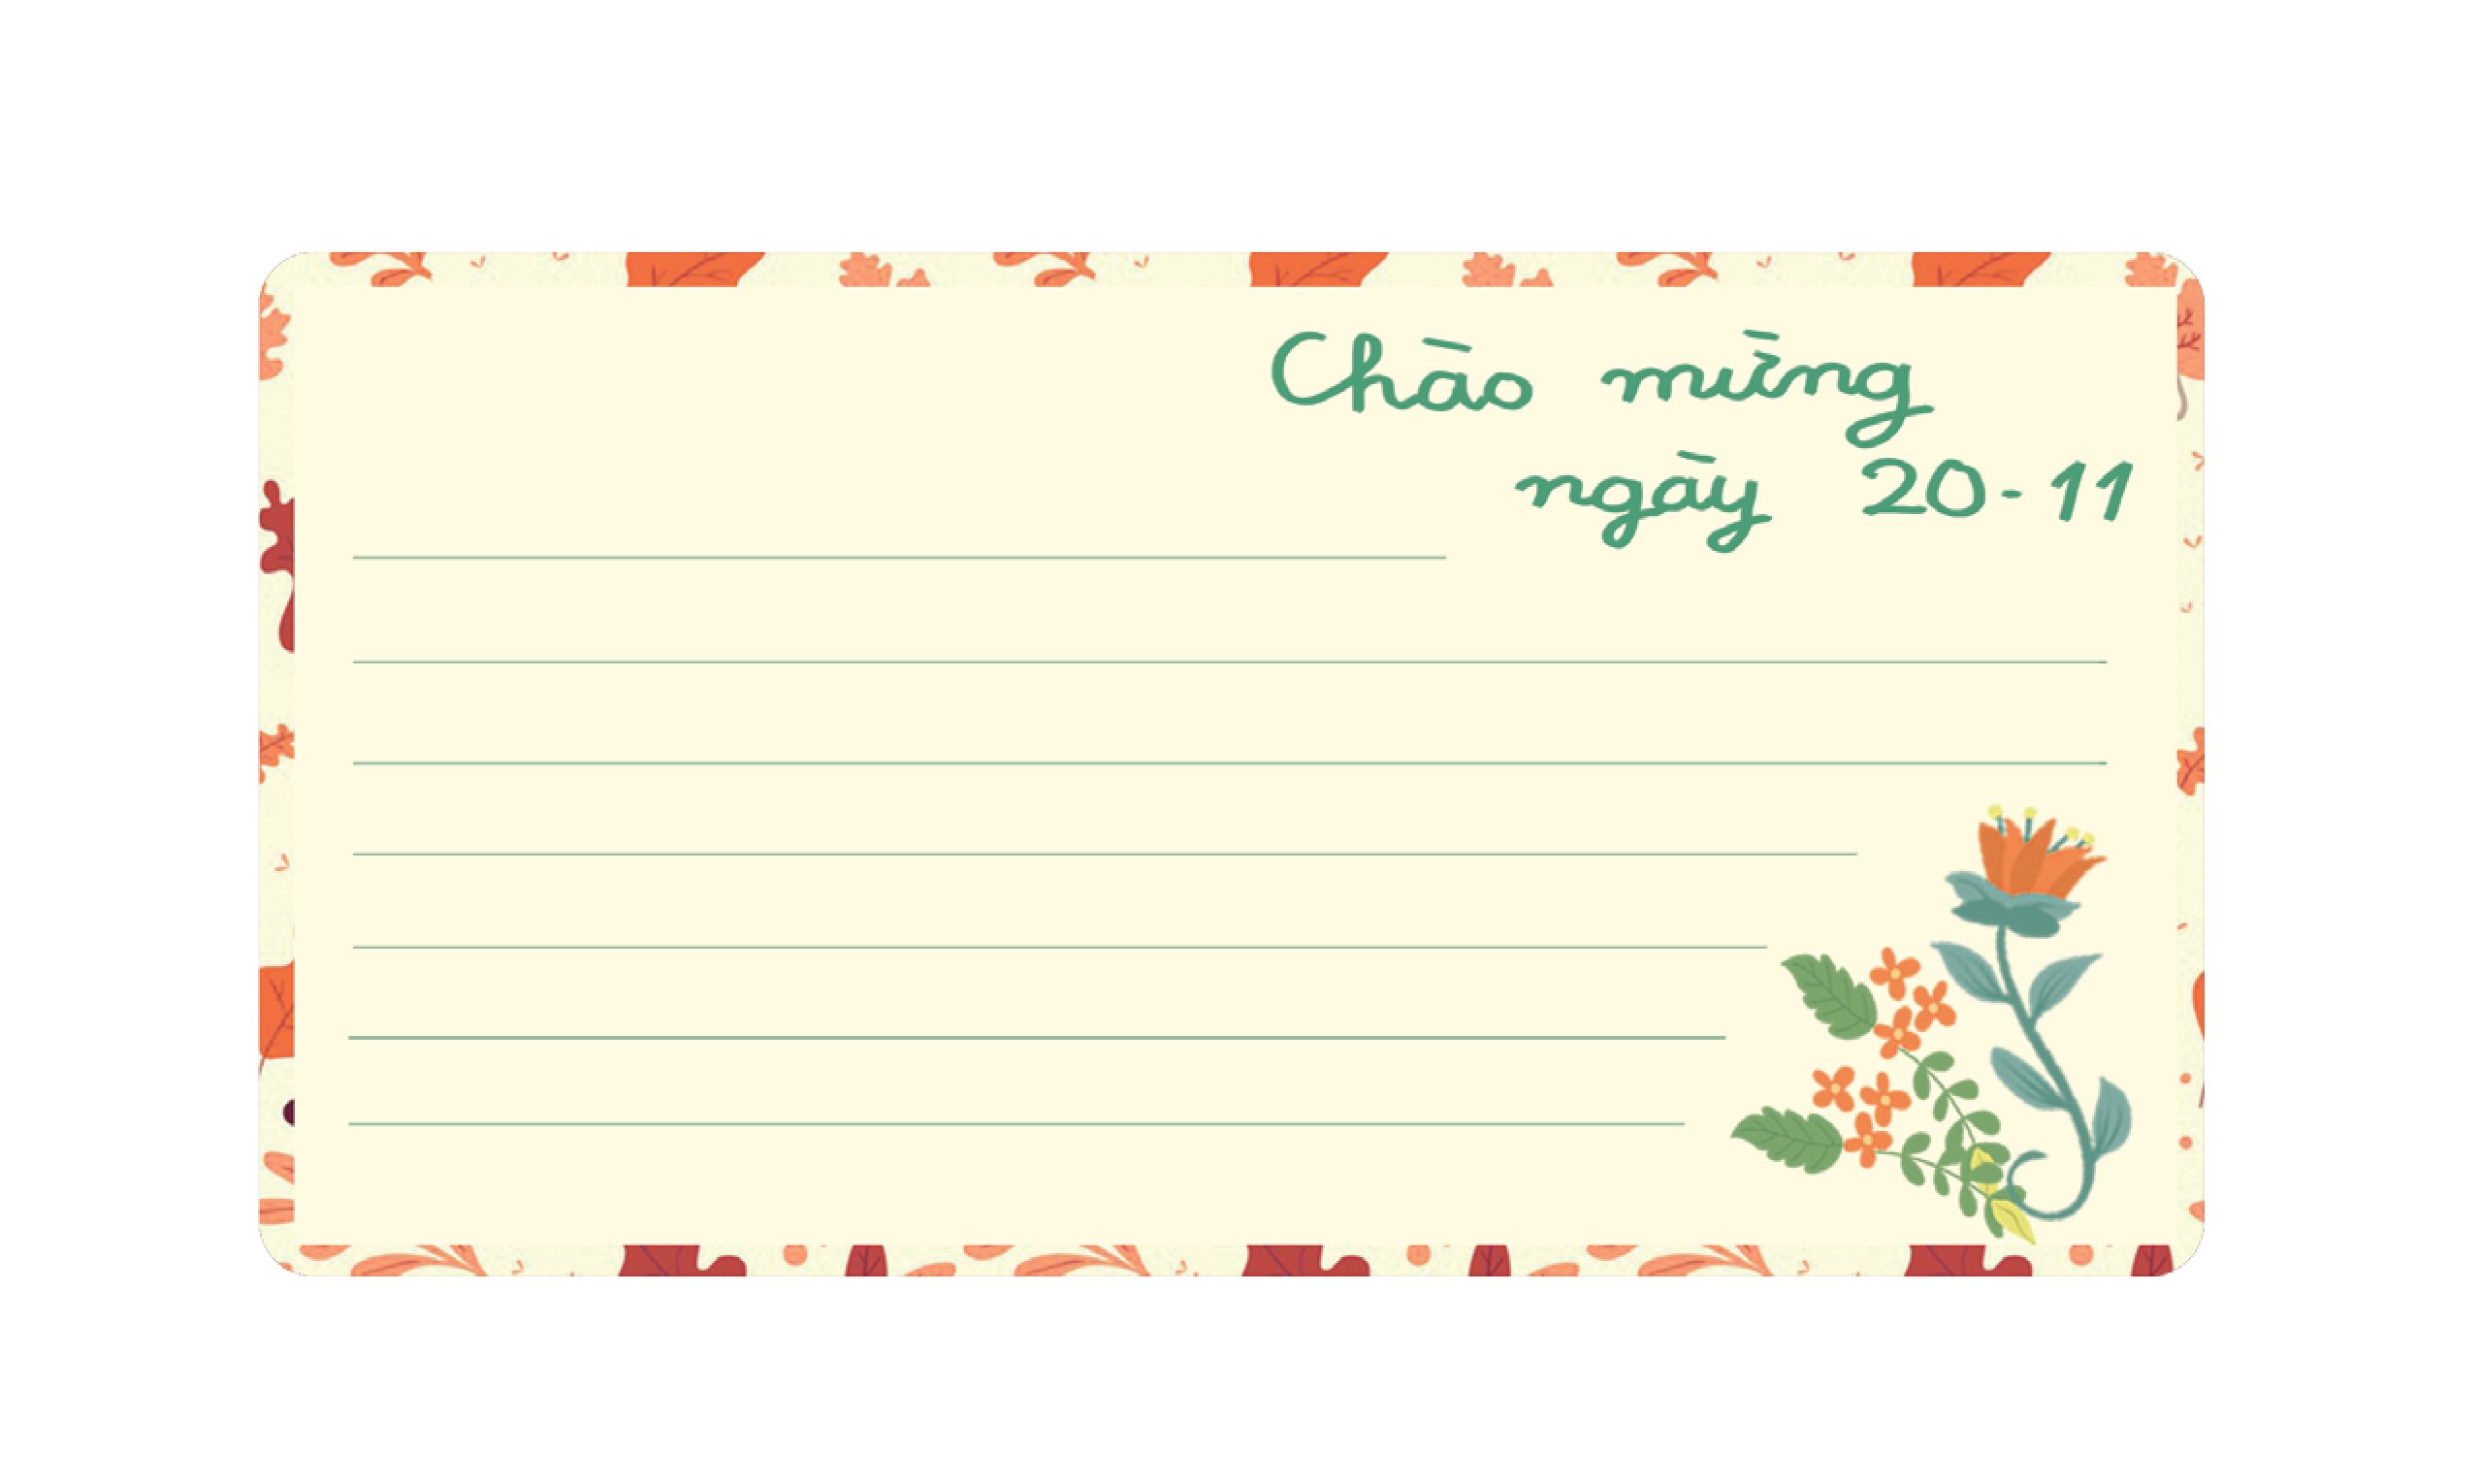 Chào mừng
ngày 20-11